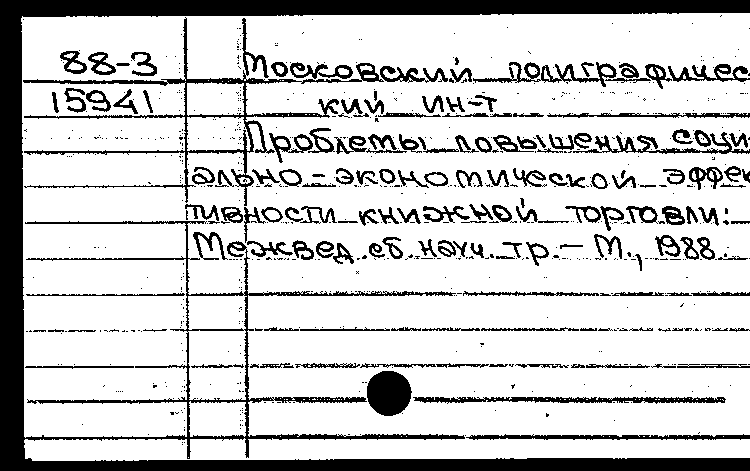 88-3 Московский полиграфичес
15941 кий ин-т
Проблемы повышения соци
ально-экономической эффек
тивности книжной торговли:
Межвед. сб. науч. тр. — М., 1988.